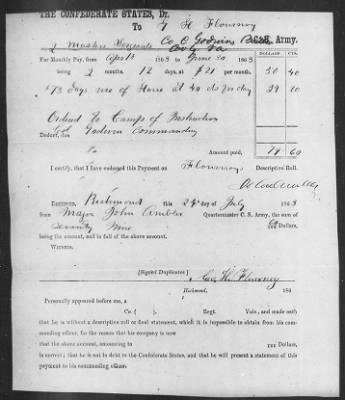 THE CONFEDERATE STATES, Dr.
To G H Flournoy
Co C Godwins
C. S. Army.
DOLLARS. CTS.
For Monthly Pay, from April 1863 to June 30 1863
being 2 months, 12 days, at $21 per month, 50 40
73 days use of Horse at 40 cts per day 29 20
Ordered To Camps of Instruction
Col Godwin Commanding
Deduct, due
Amount paid, 79 60
I certify, that I have endorsed this Payment on Flournoy's Descriptive Roll.
RECEIVED, Richmond this 24th day of July 1863
from Major John Ambler Quartermaster C. S. Army, the sum of
Seventy Nine 60/100 Dollars,
being the amount, and in full of the above account.
WITNESS.
[Signed Duplicates] Geo. H. Flournoy
Richmond, 186
Personally appeared before me, a
Co. ( ), Regt. Vol., and made oath
that he is without a descriptive roll or final statement, which it is impossible to obtain from his com-
manding officer, for the reason that his company is now
that the above account, amounting to Dollars,
is correct; that he is not in debt to the Confederate States, and that he will present a statement of this
payment to his commanding officer.